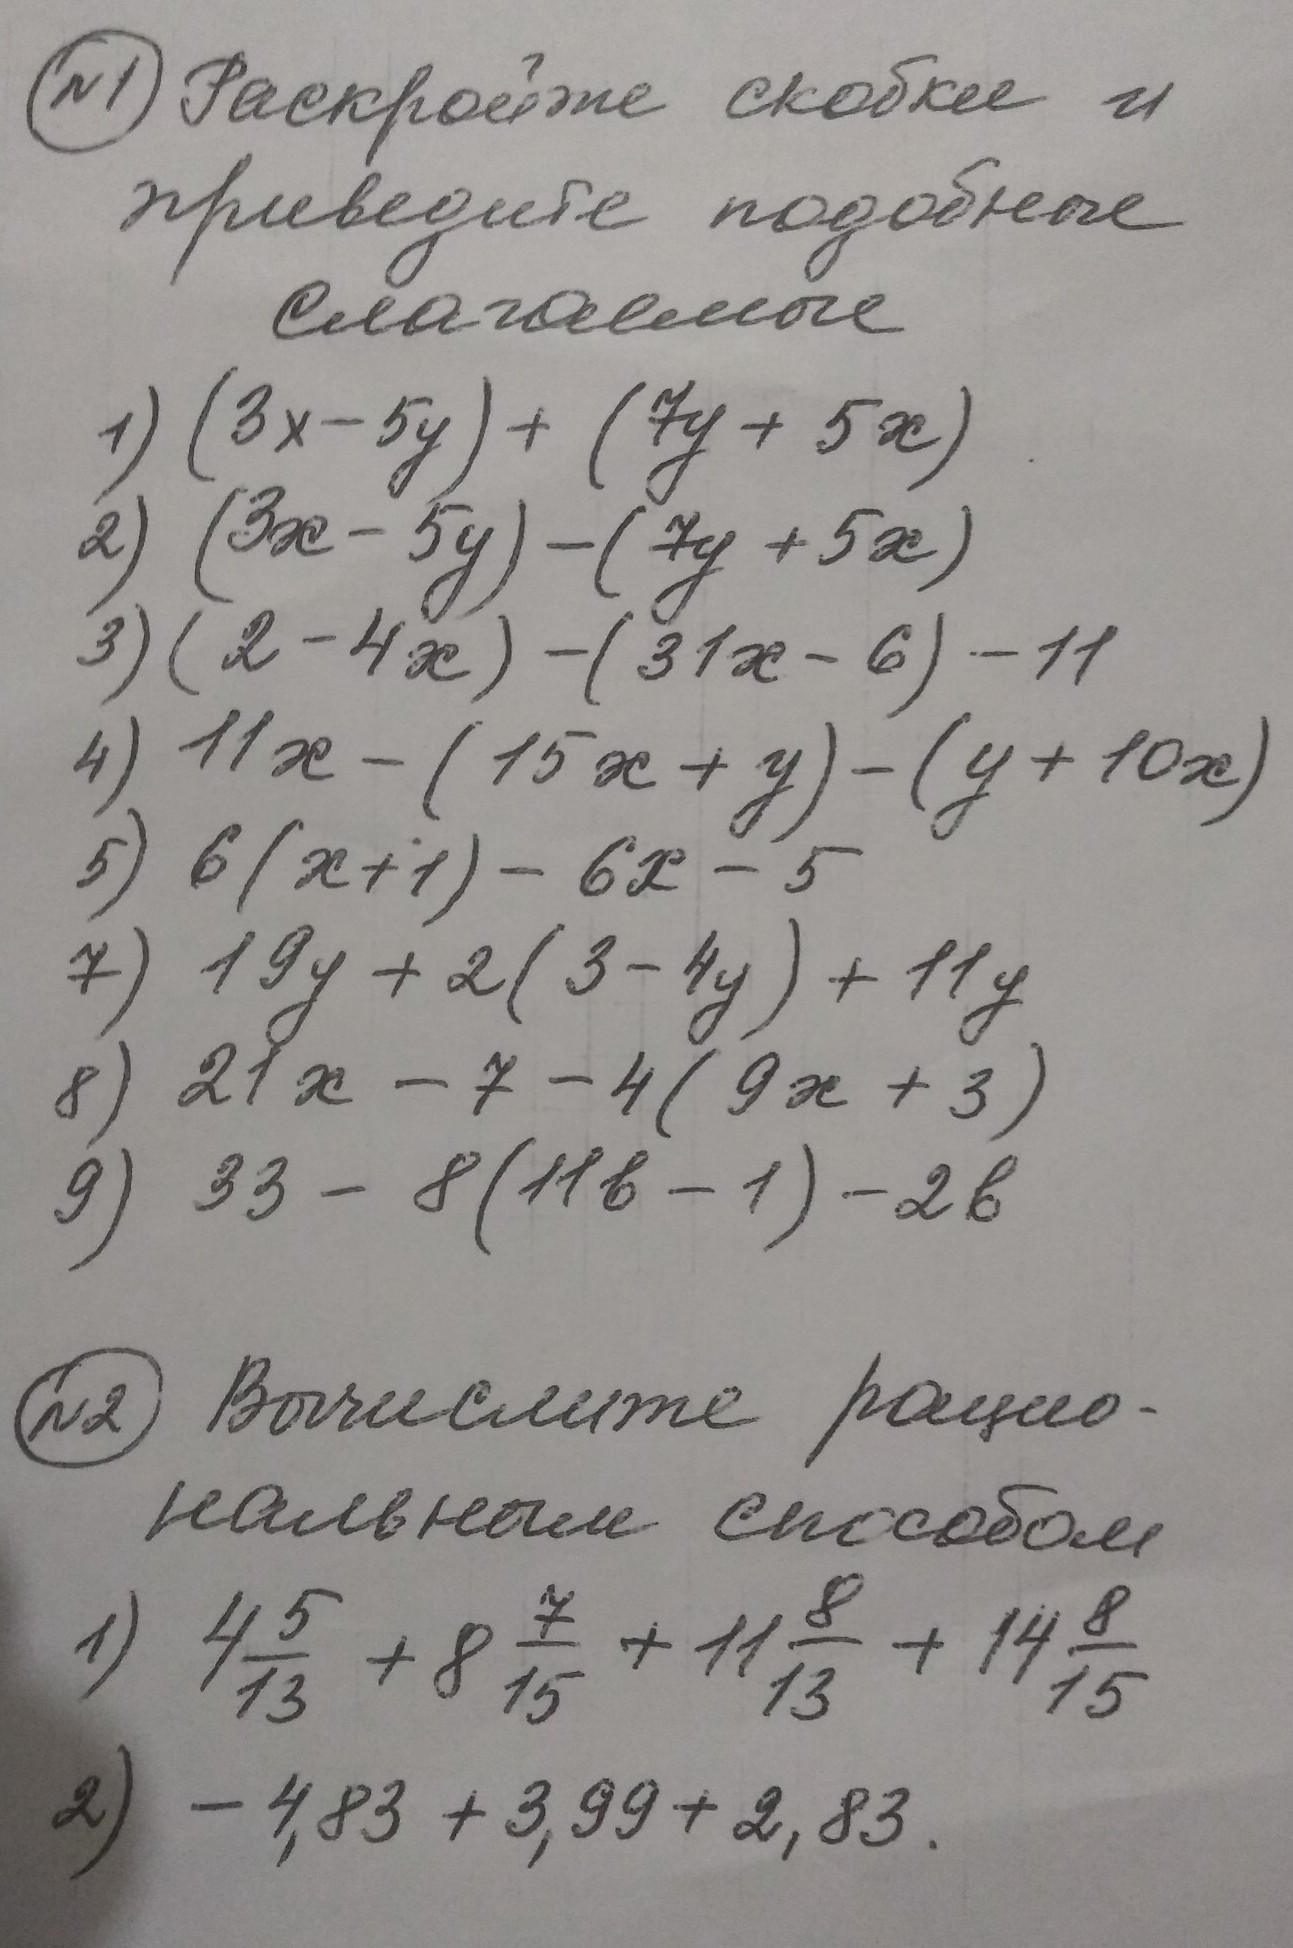 №1 Раскройте скобки и
приведите подобные
слагаемые
1) (3x - 5y) + (7y + 5x)
2) (3x - 5y) - (7y + 5x)
3) (2 - 4x) - (31x - 6) - 11
4) 11x - (15x + y) - (y + 10x)
5) 6(x+1) - 6x - 5
7) 19y + 2(3 - 4y) + 11y
8) 21x - 7 - 4(9x + 3)
9) 33 - 8(11b - 1) - 2b
№2 Вычислите рацио-
нальным способом
1) 4 5/13 + 8 7/15 + 11 8/13 + 14 8/15
2) - 4,83 + 3,99 + 2,83.